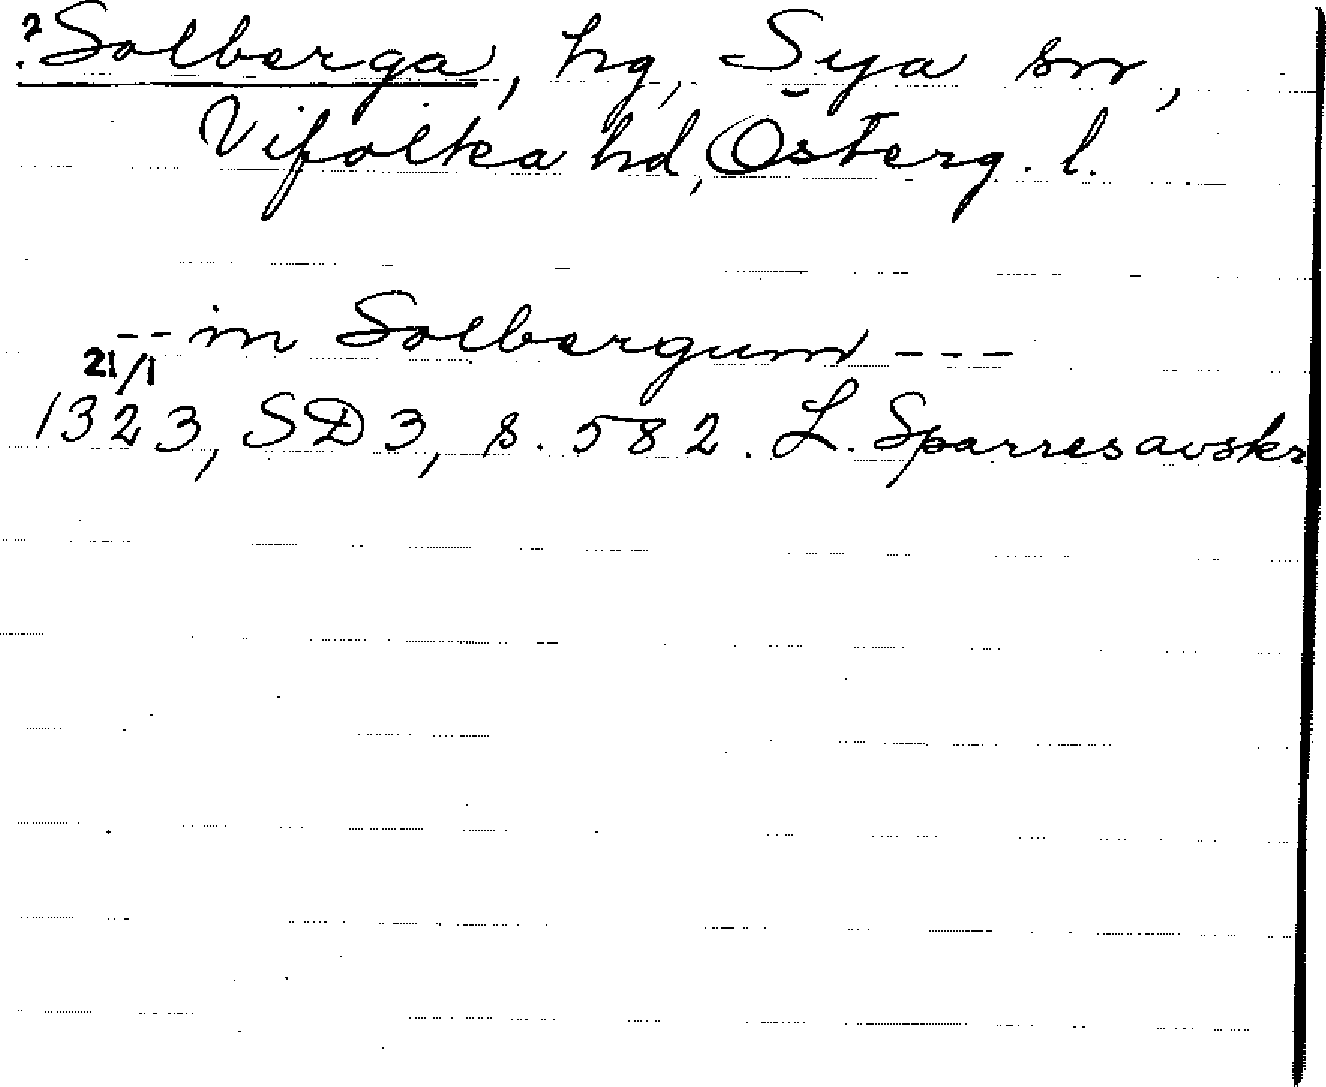 ?Solberga, hg, Sya sn,
Vifolka hd, Österg. l.
-- in Solbergum ---
21/1
1323, SD3, s. 582. L. Sparresavskr